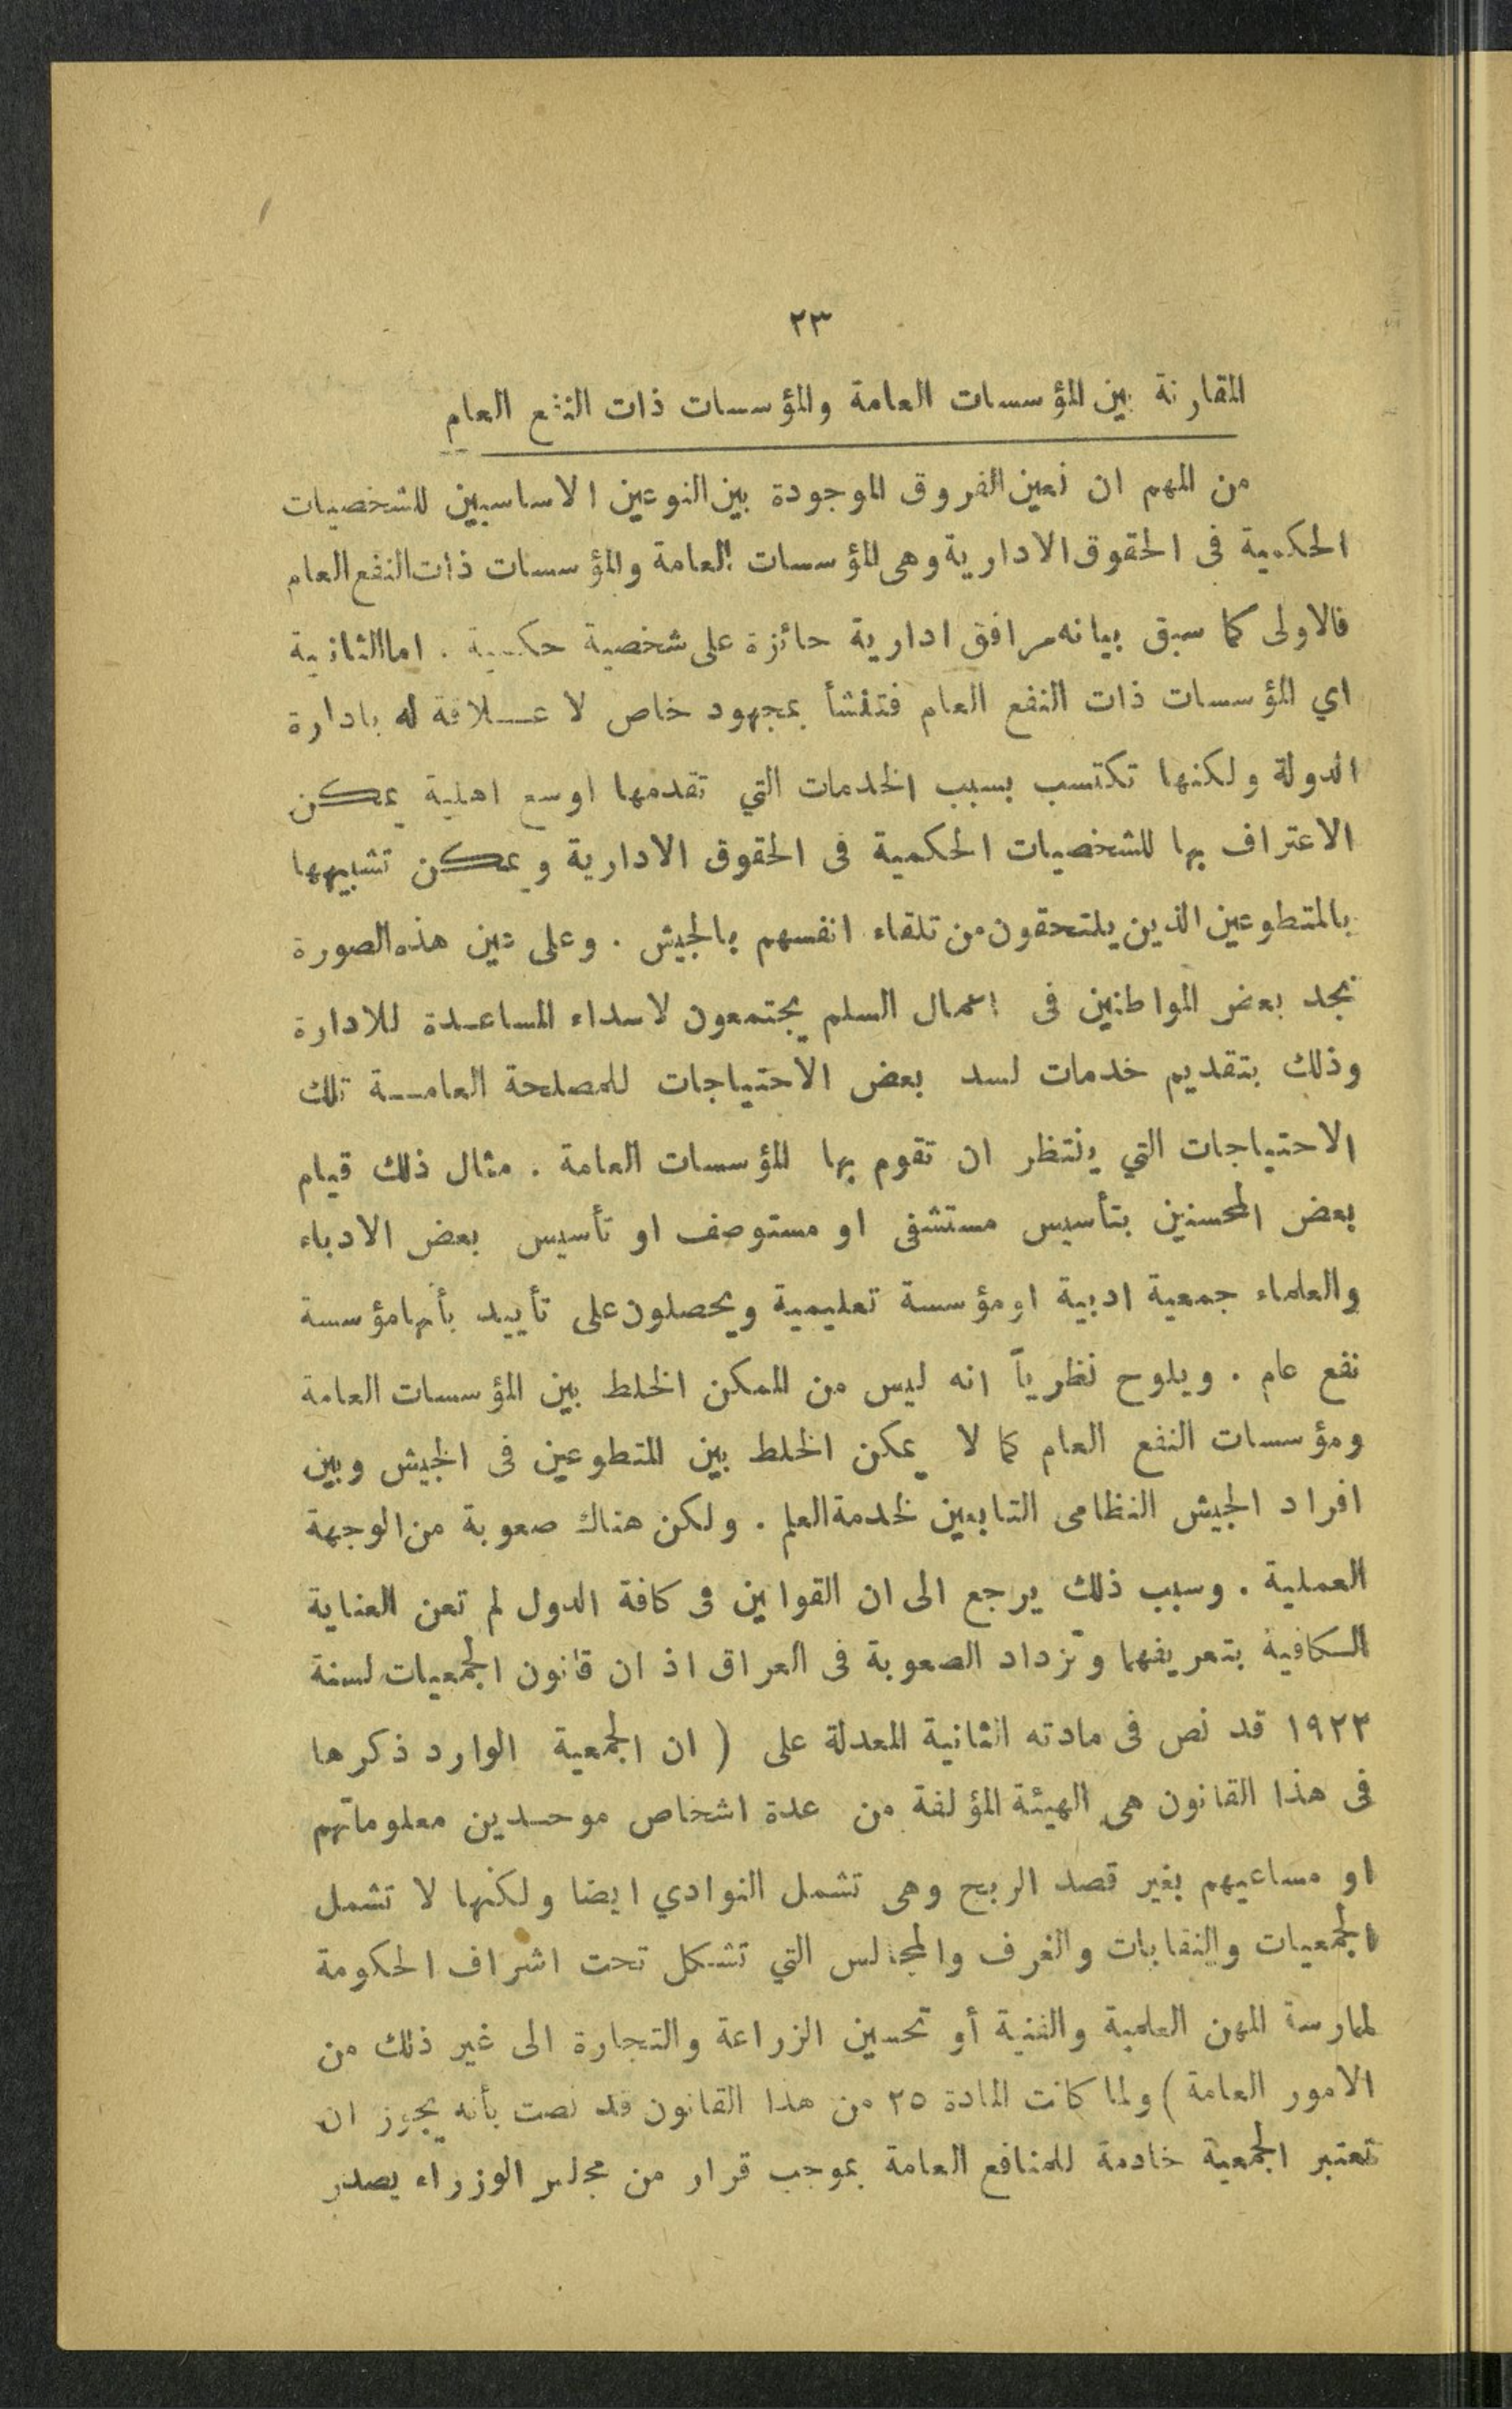 ٢٣
المقارنة بين المؤسسات العامة والمؤسسات ذات النفع العام
من المهم ان نعين الفروق الموجودة بين النوعين الاساسيين للشخصيات
الحكمية فى الحقوق الادارية وهى المؤسسات العامة والمؤسسات ذات النفع العام
فالاولى كما سبق بيانه مرافق ادارية حائزة على شخصية حكمية . اما الثانية
اي المؤسسات ذات النفع العام فتنشأ بمجهود خاص لا عــلاقة له بادارة
الدولة ولكنها تكتسب بسبب الخدمات التي تقدمها اوسع اهلية يمكن
الاعتراف بها للشخصيات الحكمية فى الحقوق الادارية ويمكن تشبيهها
بالمتطوعين الذين يلتحقون من تلقاء انفسهم بالجيش . وعلى عين هذه الصورة
نجد بعض المواطنين فى اعمال السلم يجتمعون لاسداء المساعـدة للادارة
وذلك بتقديم خدمات لسد بعض الاحتياجات للمصلحة العامــة تلك
الاحتياجات التي ينتظر ان تقوم بها المؤسسات العامة . مثال ذلك قيام
بعض المحسنين بتأسيس مستشفى او مستوصف او تأسيس بعض الادباء
والعلماء جمعية ادبية او مؤسسة تعليمية ويحصلون على تأييد بأنها مؤسسة
نفع عام . ويلوح نظرياً انه ليس من الممكن الخلط بين المؤسسات العامة
ومؤسسات النفع العام كما لا يمكن الخلط بين المتطوعين فى الجيش وبين
افراد الجيش النظامى التابعين لخدمة العلم . ولكن هناك صعوبة من الوجهة
العملية . وسبب ذلك يرجع الى ان القوانين فى كافة الدول لم تعن العناية
الكافية بتعريفهما وتزداد الصعوبة فى العراق اذ ان قانون الجمعيات لسنة
١٩٢٢ قد نص فى مادته الثانية المعدلة على ( ان الجمعية الوارد ذكرها
فى هذا القانون هى الهيئة المؤلفة من عدة اشخاص موحـدين معلوماتهم
او مساعيهم بغير قصد الربح وهى تشمل النوادي ايضا ولكنها لا تشمل
الجمعيات والنقابات والغرف والمجالس التي تشكل تحت اشراف الحكومة
لممارسة المهن العلمية والفنية أو تحسين الزراعة والتجارة الى غير ذلك من
الامور العامة ) ولما كانت المادة ٢٥ من هذا القانون قد نصت بأنه يجوز ان
تعتبر الجمعية خادمة للمنافع العامة بموجب قرار من مجلس الوزراء يصدر